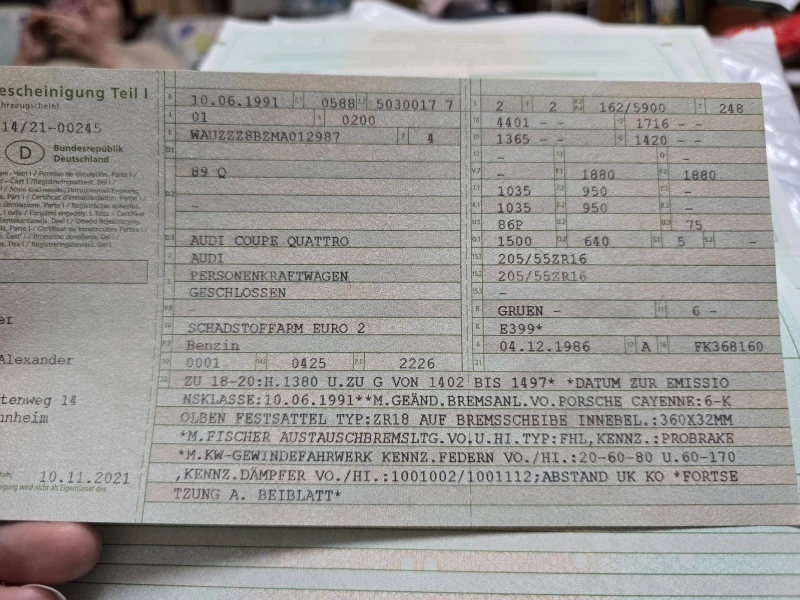 escheinigung Teil I
hrzeugschein)
14/21-00245
D Bundesrepublik
Deutschland
er
Alexander
tenweg 14
nnheim
10.11.2021
10.06.1991 0588 5030017 7
01 0200
WAUZZZ8BZMA012987 4
89 Q
–
AUDI COUPE QUATTRO
AUDI
PERSONENKRAFTWAGEN
GESCHLOSSEN
–
SCHADSTOFFARM EURO 2
Benzin
0001 0425 2226
2 2 162/5900 248
4401 – – 1716 – –
1365 – – 1420 – –
– – –
– 1880 1880
1035 950 –
1035 950 –
86P 75
1500 640 5 –
205/55ZR16
205/55ZR16
–
GRUEN – 6 –
E399*
04.12.1986 A FK368160
ZU 18-20:H.1380 U.ZU G VON 1402 BIS 1497* *DATUM ZUR EMISSIO
NSKLASSE:10.06.1991**M.GEÄND.BREMSANL.VO.PORSCHE CAYENNE:6-K
OLBEN FESTSATTEL TYP:ZR18 AUF BREMSSCHEIBE INNEBEL.:360X32MM
*M.FISCHER AUSTAUSCHBREMSLTG.VO.U.HI.TYP:FHL,KENNZ.:PROBRAKE
*M.KW-GEWINDEFAHRWERK KENNZ.FEDERN VO./HI.:20-60-80 U.60-170
,KENNZ.DÄMPFER VO./HI.:1001002/1001112;ABSTAND UK KO *FORTSE
TZUNG A. BEIBLATT*